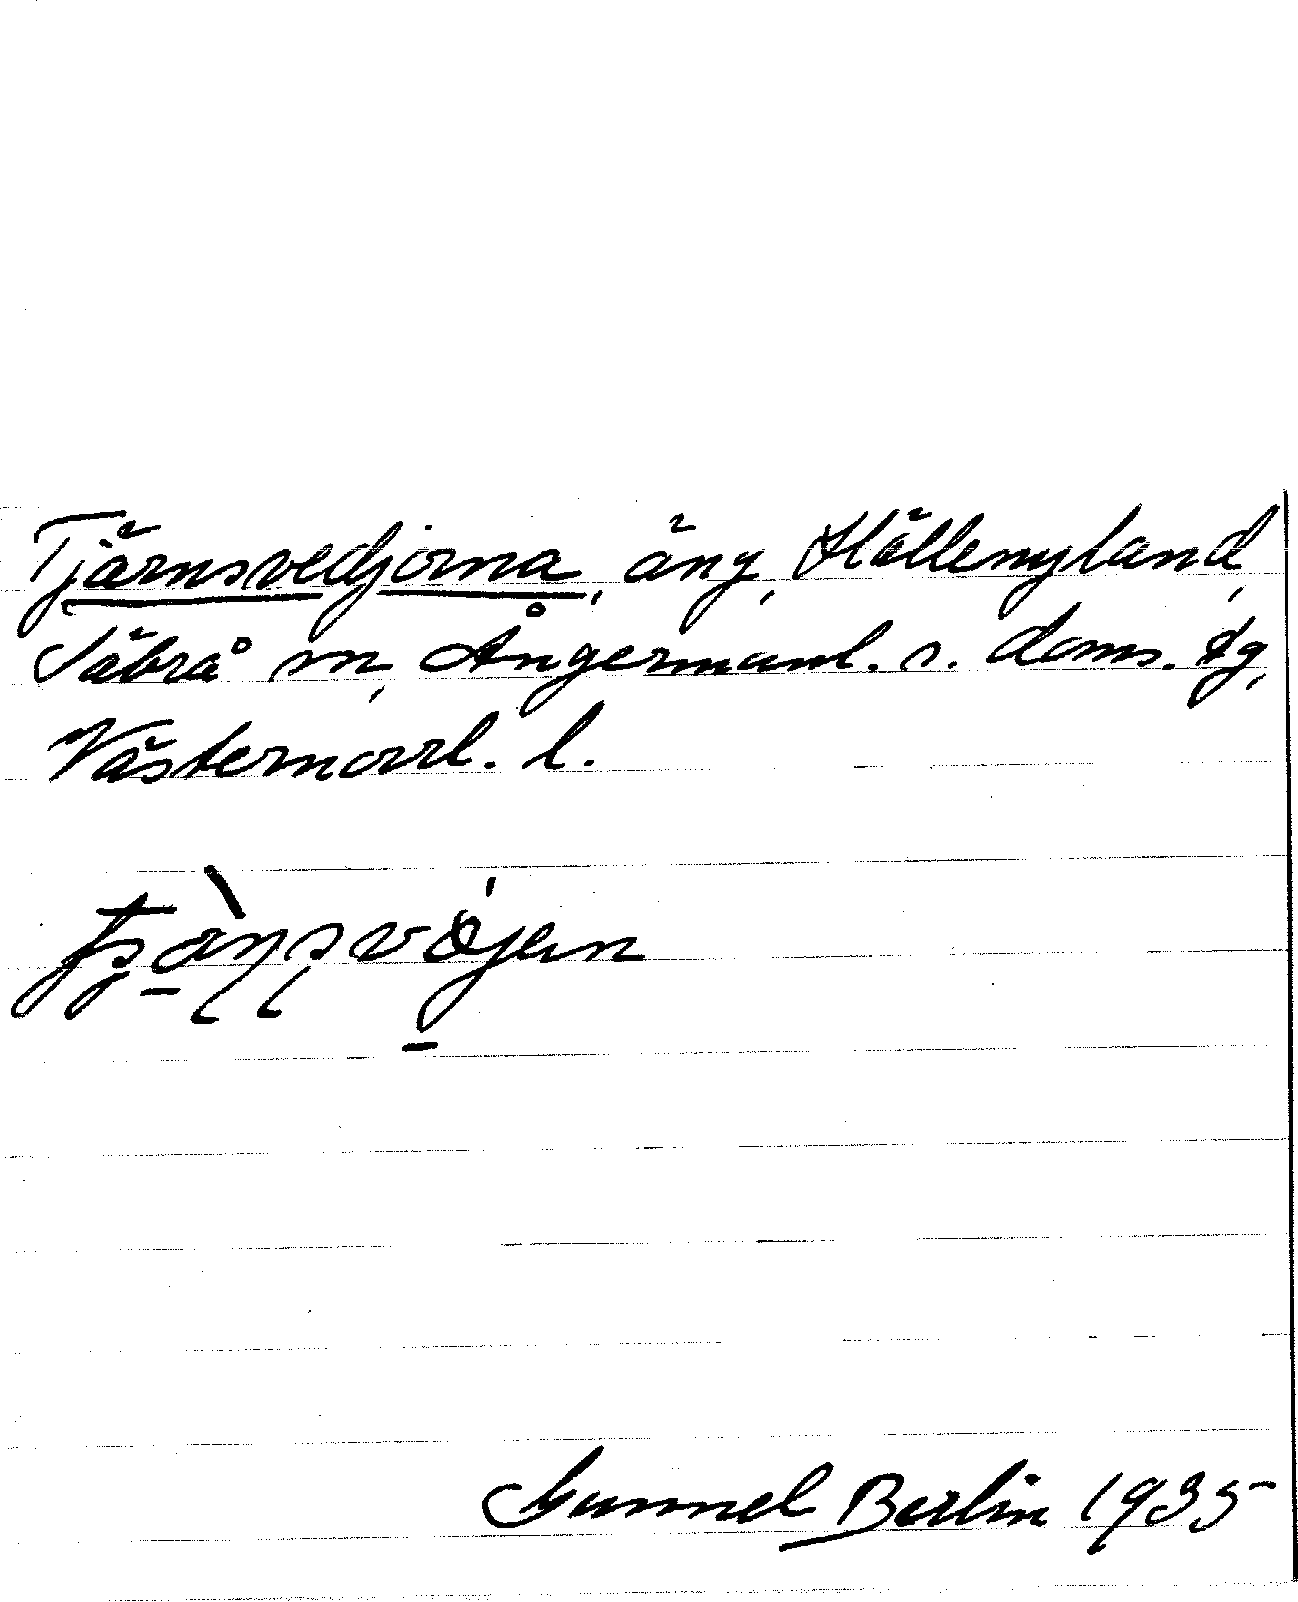 Tjärnsvedjorna, äng, Hällenyland,
Säbrå sn, Ångermanl. s. doms. tg,
Västernorrl. l.
Gunnel Berlin 1935